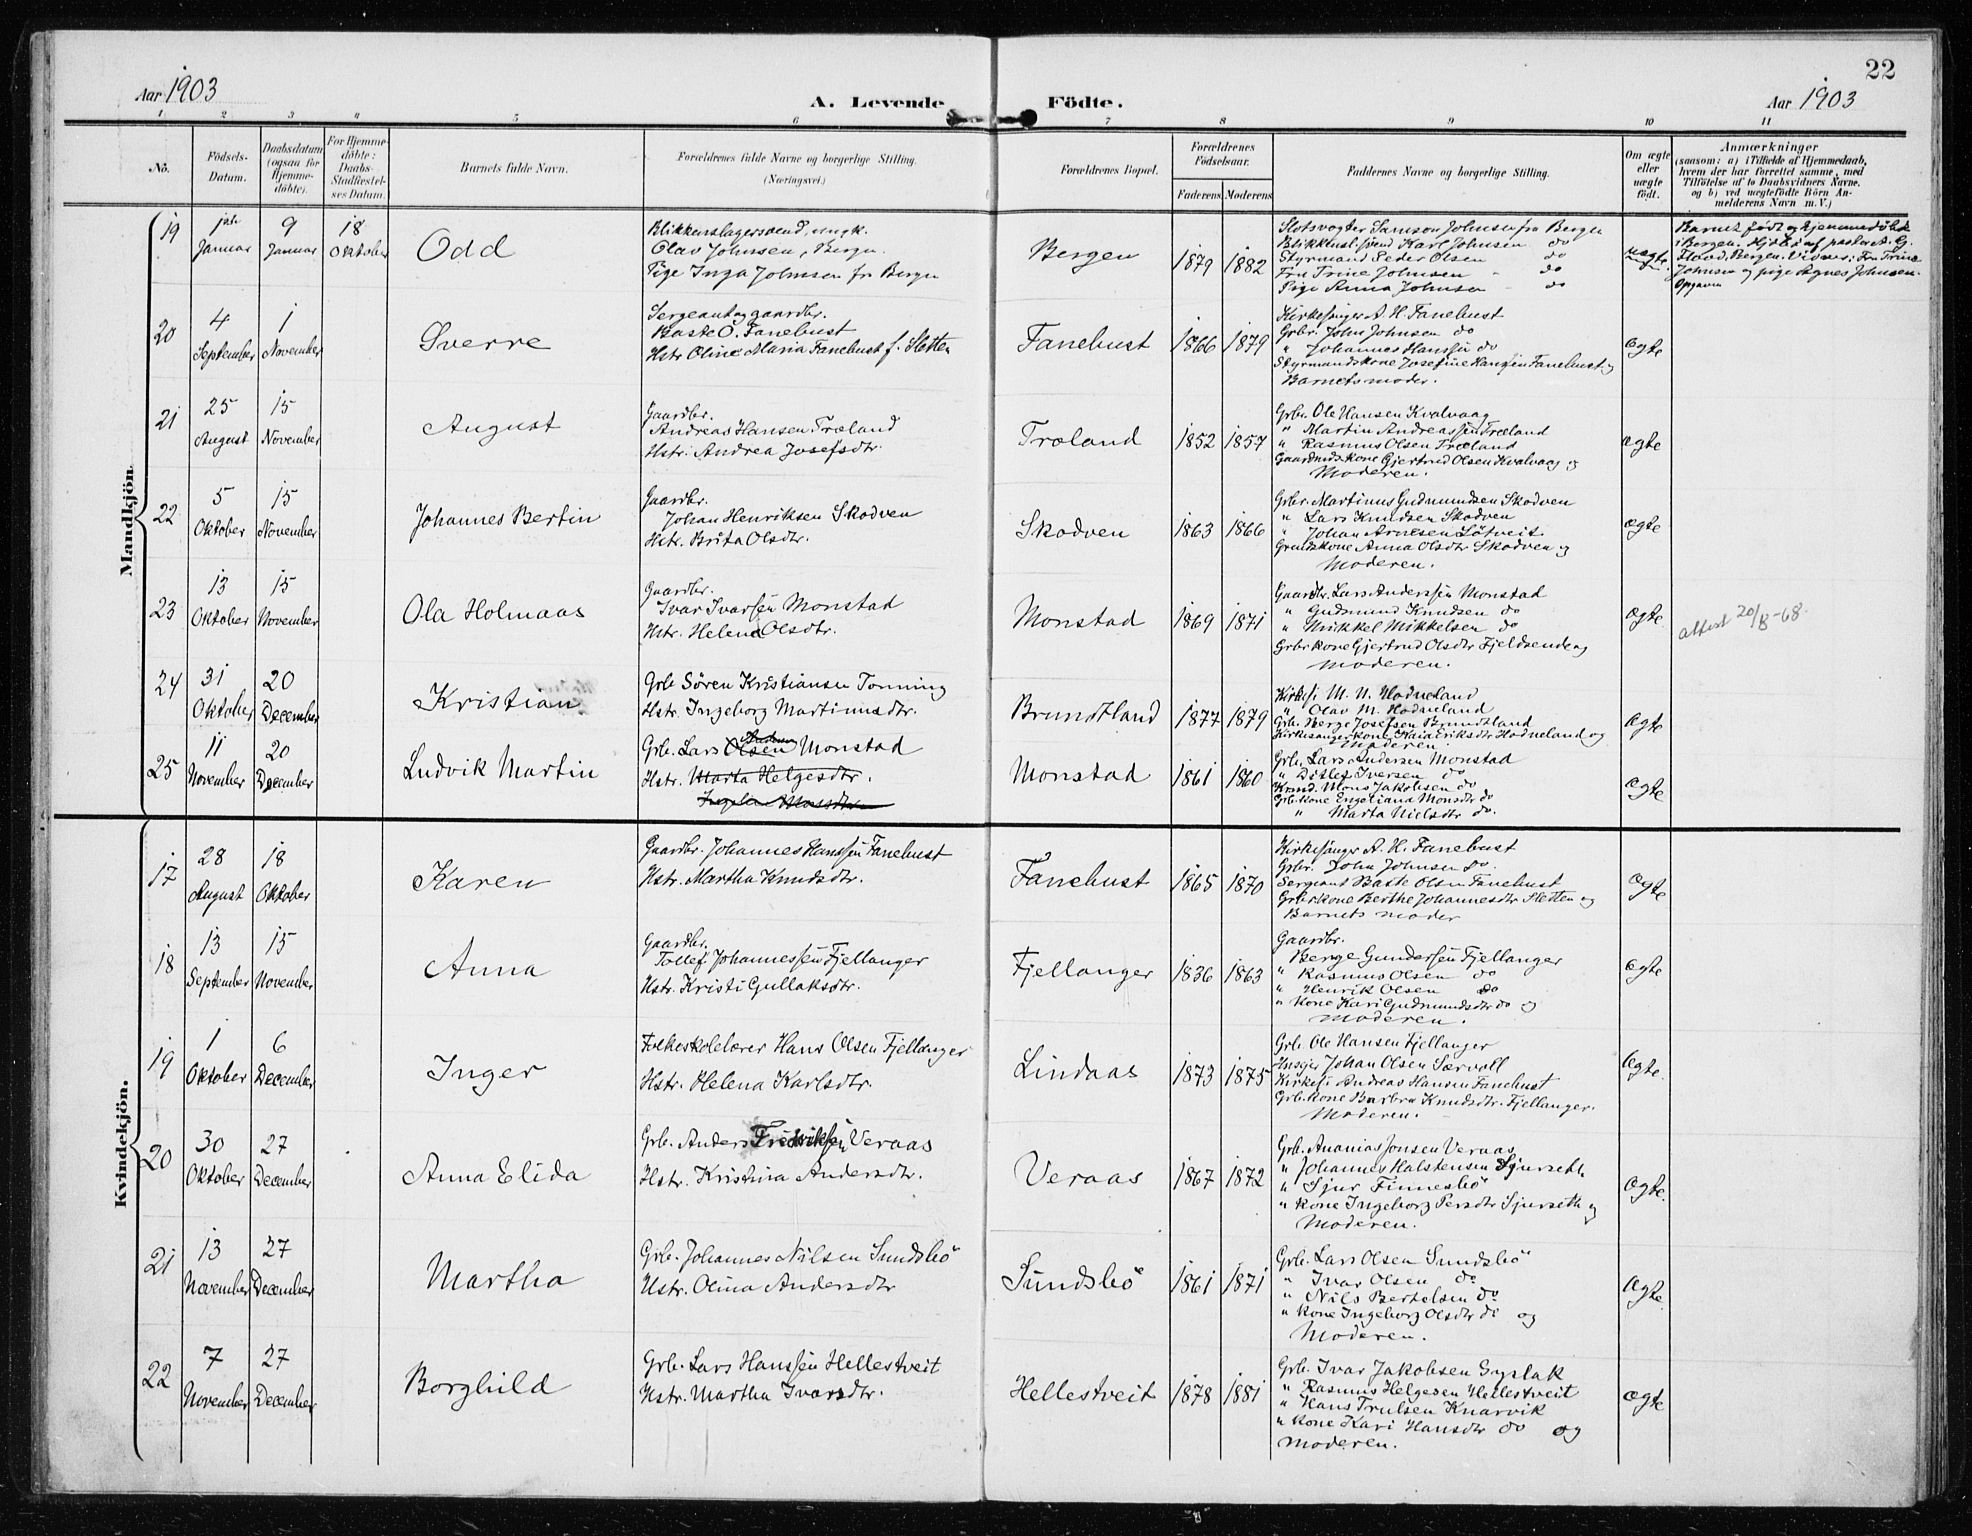 22
Aar 1903
A. Levende Födte.
Aar 1903
1 2 3 4 5 6 7 8 9 10 11
No.
Födsels-Datum.
Daabsdatum (ogsaa for Hjemmedöbte).
For Hjemmedöbte: Daabs-Stadfæstelses Datum.
Barnets fulde Navn.
Forældrenes fulde Navne og borgerlige Stilling. (Næringsvei.)
Forældrenes Bopæl.
Forældrenes Födselsaar.
Faderens Moderens
Faddernes Navne og borgerlige Stilling.
Om ægte eller uægte födt.
Anmærkninger
(saasom: a) i Tilfælde af Hjemmedaab, hvem der har forrettet samme, med Tilföielse af to Daabsvidners Navne, og b) ved uægtefödte Börn Anmelderens Navn m. V.)
Mandkjön.
19
1ste Januar
9 Januar
18 Oktober
Odd
Blikkenslagersvend, ungk.
Olav Johnsen, Bergen.
Pige Inga Johnsen fr Bergen
Bergen
1879 1882
Slotsvogter Samson Johnsen fra Bergen
Blikkenslsvend Karl Johnsen do
Styrmand Peder Olsen do
Fru Trine Johnsen - do
Pige Anna Johnsen - do
uægte
Barnet født og hjemmedöbt
i Bergen. Hjdbt af pastor A. G.
Flood, Bergen. Vidner: Fru Trine
Johnsen og pige Agnes Johnsen.
Opgaven
20
4 September
1 November
Sverre
Sergeant og gaardbr.
Baste O. Fanebust
Hstr Oline Maria Fanebust f. Sletten
Fanebust
1866 1879
Kirkesanger A. H. Fanebust
Grbr. John Johnsen do
" Johannes Hanssen do
Styrmandskone Josefine Hanssen Fanebust og
Barnets moder.
ægte
21
25 August
15 November
August
Gaardbr.
Andreas Hansen Træland
Hstr. Andrea Josefsdtr.
Træland
1852 1857
Grbr. Ole Hansen Kvalvaag
" Martin Andreassen Træland
" Rasmus Olsen Træland
Gaardmds. kone Gjertrud Olsen Kvalvaag og
Moderen.
ægte
22
5 Oktober
15 November
Johannes Bertin
Gaardbr.
Johan Henriksen Skodven
Hstr. Brita Olsdtr.
Skodven
1863 1866
Grbr. Martinus Gudmundsen Skodven
" Lars Knudsen Skodven
" Johan Arnesen Lötveit
Grmdskone Anna Olsdtr Skodven og
Moderen.
ægte
23
13 Oktober
15 November
Ola Holmaas
Gaardbr.
Ivar Ivarsen Monstad
Hstr. Helena Olsdtr.
Monstad
1869 1871
Gaardbr. Lars Anderssen Monstad
" Gudmund Knudsen do
" Mikkel Mikkelsen do
Grbr kone Gjertrud Olsdtr Fjeldsende og
moderen.
ægte
attest 20/8-68.
24
31 Oktober
20 December
Kristian
Grb Sören Kristiansen Tonning
Hstr. Ingeborg Martinusdtr.
Brundtland
1877 1879
Kirkes. M. N. Hodneland
" Olav M. Hodneland
Grb. Berge Josefsen Brundtland
Kirkesangerkone Kaia Eriksdtr Hodneland og
Moderen.
ægte
25
11 November
20 December
Ludvik Martin
Andersen
Grb. Lars Olsen Monstad
Hstr. Marta Helgesdtr.
Monstad
1861 1860
Grb. Lars Andersen Monstad
" Ditlef Iversen do
Krmd. Mons Jakobsen do
Grb.kone Engeliana Monsdtr do
" Marta Nielsdtr do.
ægte
Kvindekjön.
17
28 August
18 Oktober
Karen
Gaardbr. Johannes Hanssen Fanebust
Hstr. Martha Knudsdtr.
Fanebust
1865 1870
Kirkesanger A. H. Fanebust
Grbr. John Johnsen do.
Sergeant Baste Olsen Fanebust
Grbr kone Berthe Johannesdtr Sletten og
Barnets moder
ægte
18
13 September
15 November
Anna
Gaardbr.
Tollef Johannessen Fjellanger
Hstr. Kristi Gullaksdtr.
Fjellanger
1836 1863
Gaardbr.
Berge Gundersen Fjellanger
" Rasmus Olsen do
" Henrik Olsen do
" kone Kari Gudmundsdtr do og
moderen.
ægte
19
1 Oktober
6 December
Inger
Folkeskolelærer Hans Olsen Fjellanger
Hstr. Helena Karlsdtr.
Lindaas
1873 1875
Grb. Ole Hansen Fjellanger
Husejer Johan Olsen Særvoll
Kirkes. Andreas Hansen Fanebust
Grb. kone Barbra Knudsdtr. Fjellanger.
Moderen.
ægte.
20
30 Oktober
27 December
Anna Elida
Grb. Anders Fredriksen Veraas
Hstr. Kristina Andersdtr.
Veraas
1867 1872
Grb. Ananias Jonsen Veraas
" Johannes Halstensen Sjurseth
" Sjur Finnesbö
" kone Ingeborg Persdtr Sjurseth og
Moderen.
ægte.
21
13 November
27 December
Martha
Grb. Johannes Nilsen Sundsbö
Hstr. Olina Andersdtr
Sundsbö
1861 1871
Grb. Lars Olsen Sundsbö
" Ivar Olsen do
" Nils Bertelsen do
" kone Ingeborg Olsdtr do og
Moderen.
ægte.
22
7 November
27 December
Borghild
Grb. Lars Hanssen Hellestveit
Hstr. Martha Ivarsdtr.
Hellestveit
1878 1881
Grb. Ivar Jakobsen Syslak
" Rasmus Helgesen Hellestveit
" Hans Trulsen Knarvik
" kone Kari Hansdtr do og
moderen.
ægte